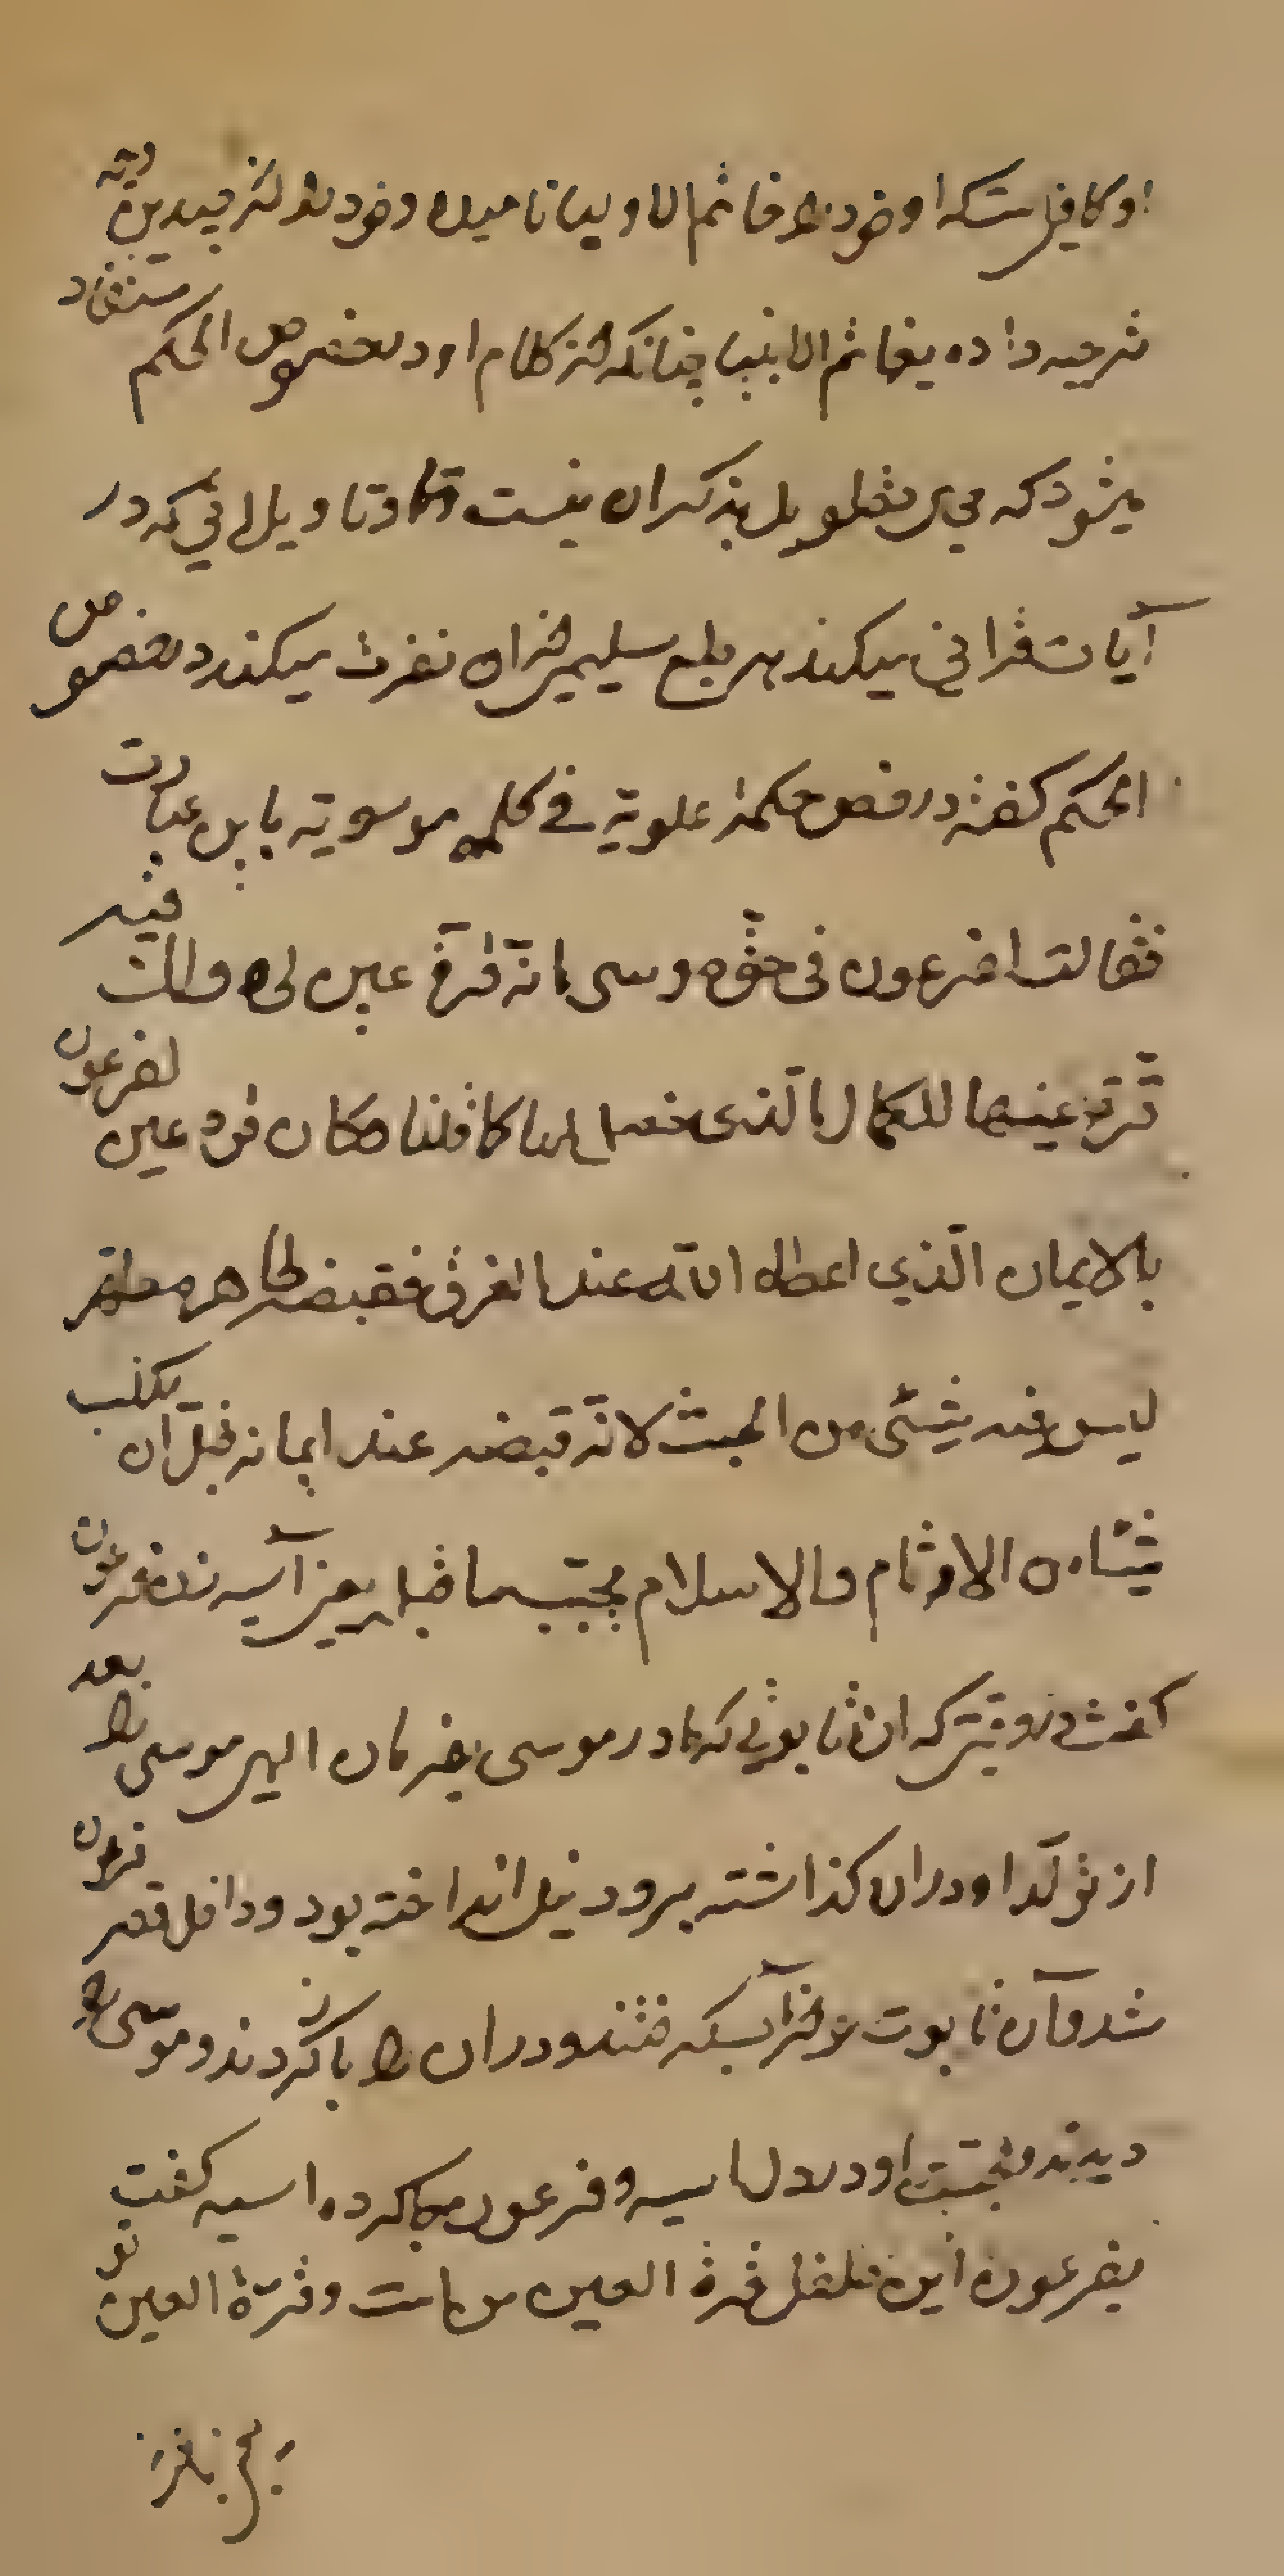 او کافیست که او خود را خاتم الاولیا نامیده و خود را از چندین جهت
ترجیح داده بخاتم الانبیا چنانکه از کلام او در فصوص الحکم مستفاد
میشود که مجال تطویل بذکر ان نیست و تاویلاتی که در
آیات قرآنی میکند هر طبع سلیم از ان نفرت میکند در فصوص
الحکم گفته در فص حکمة علویة فی کلمة موسویة باین عبارت
فقالت لفرعون فی حق موسی انه قرة عین لی ولک فبه
قرت عینها بالکمال الذی حصل لها کما قلنا وکان قرة عین لفرعون
بالایمان الذی اعطاه الله عند الغرق فقبضه طاهرا مطهرا
لیس فیه شیئی من الخبث لانه قبضه عند ایمانه قبل ان یکتسب
شیئا من الاثام والاسلام یجب ما قبله یعنی آسیه زن فرعون
گفت در وقتی که ان تابوتی که مادر موسی بفرمان الهی موسی را بعد
از تولد او در ان گذاشته برود نیل انداخته بود و داخل قصر فرعون
شد و آن تابوت را از آب گرفتند و در ان را باز کردند و موسی را
دیدند و محبت او در دل آسیه و فرعون جا کرده آسیه گفت
بفرعون این طفل قرة العین من است و قرة العین تو